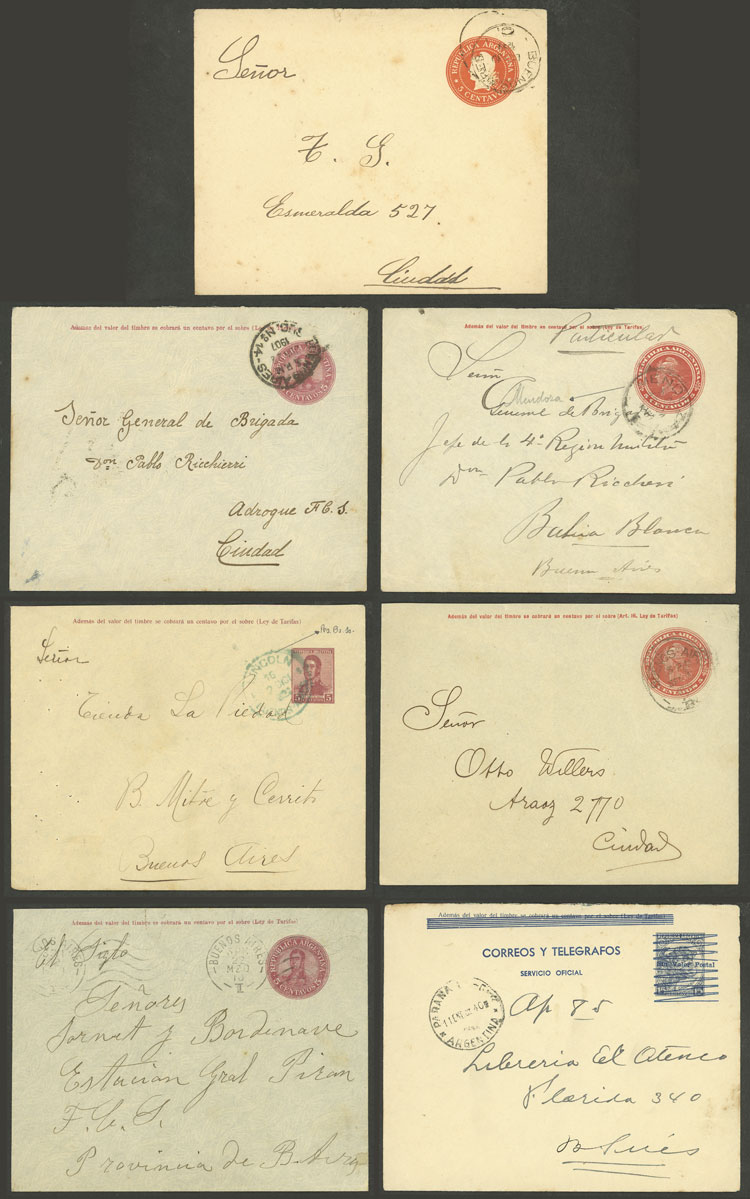 REPUBLICA ARGENTINA
5 CENTAVOS
Señor
T. G.
Esmeralda 527
Ciudad
Además del valor del timbre se cobrará un centavo por el sobre (Ley de Tarifas)
1907
CENTAVOS 5
Señor General de Brigada
don Pablo Ricchierri
Adrogue F.C.S.
Ciudad
Además del valor del timbre se cobrará un centavo por el sobre (Ley de Tarifas)
Particular
REPUBLICA ARGENTINA
CENTAVOS
Señor
Mendoza
General de Brig
Jefe de la 4ª Region Militar
Don Pablo Riccheri
Bahia Blanca
Buenos Aires
Además del valor del timbre se cobrará un centavo por el sobre (Ley de Tarifas)
LINCOLN
Señor
Tienda La Piedad
B. Mitre y Cerrito
Buenos Aires
Además del valor del timbre se cobrará un centavo por el sobre (Art. 16. Ley de Tarifas)
Señor
Otto Willers
Araoz 2770
Ciudad
Además del valor del timbre se cobrará un centavo por el sobre (Ley de Tarifas)
BUENOS AIRES
22
MZO
10
REPUBLICA ARGENTINA
5 CENTAVOS 5
Al Siglo
Señores
Sornet y Bordenave
Estacian Gral Piran
F.C.S.
Provincia de B. Aires
Además del valor del timbre se cobrará un centavo por el sobre (Ley de Tarifas)
CORREOS Y TELEGRAFOS
SERVICIO OFICIAL
Sin Valor Postal
PARANA
ARGENTINA
Ap 85
Libreria El Ateneo
Florida 340
Bs As